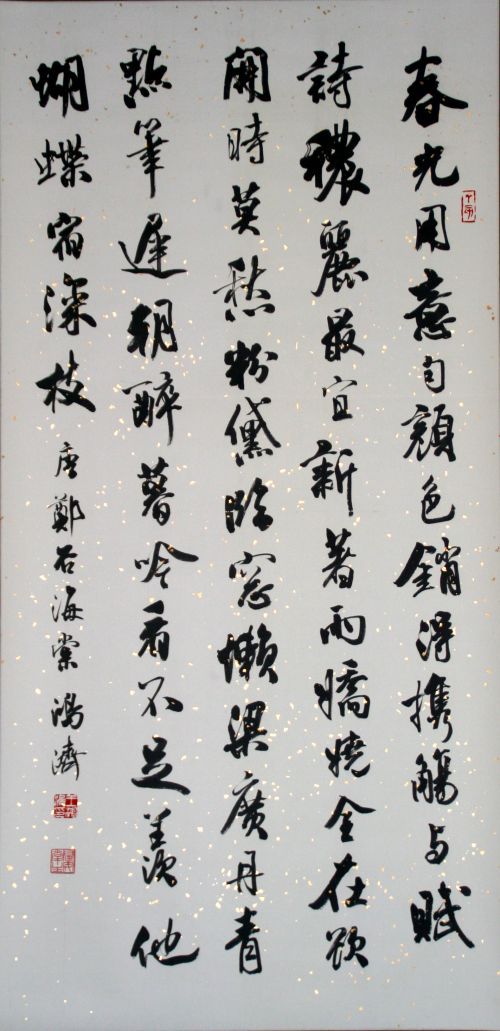 春光用意匀顏色銷得携觴与賦
詩穠麗最宜新著雨嬌嬈全在欲
開時莫愁粉黛臨窓懶梁廣丹青
點筆遲朝醉暮吟看不足羨他
蝴蝶宿深枝 唐鄭谷海棠 鴻濟